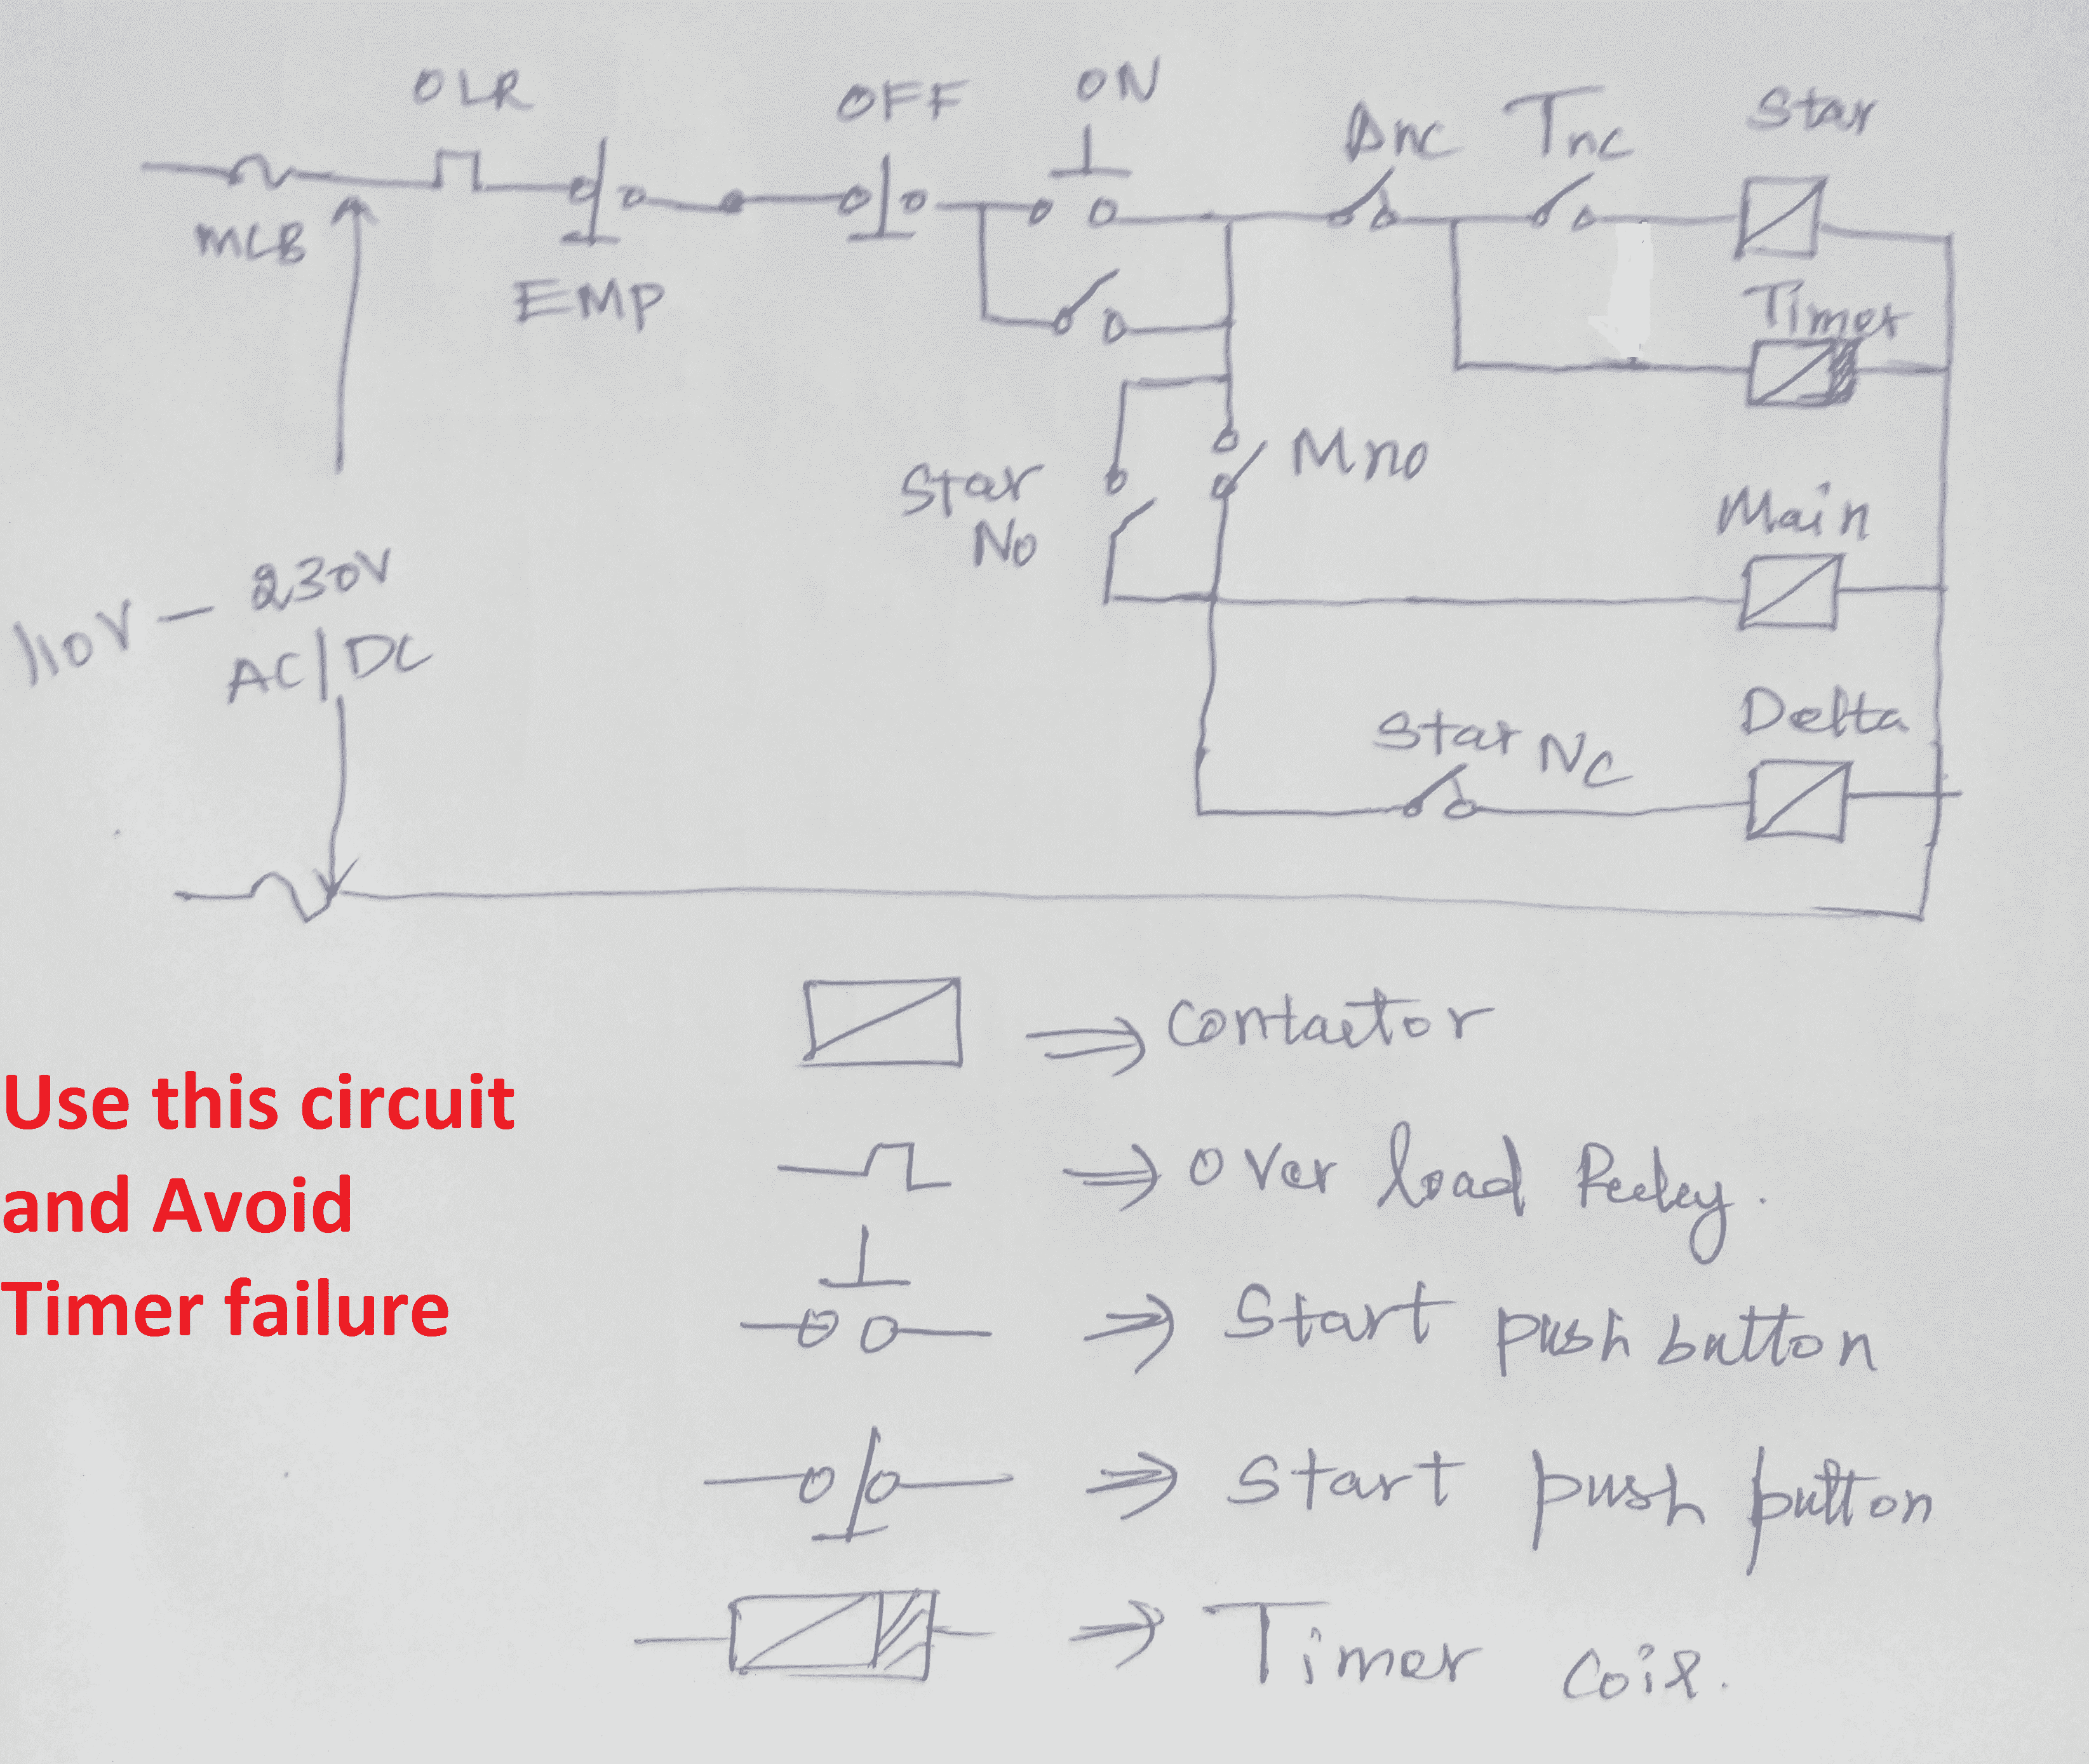 OLR
OFF
ON
Dnc
Tnc
Star
MCB
EMP
Timer
Star
No
Mno
Main
110V - 230V
AC/DC
Star NC
Delta
⇒ Contactor
⇒ Over load Reeley.
⇒ Start push button
⇒ Start push putton
⇒ Timer coil.
Use this circuit
and Avoid
Timer failure